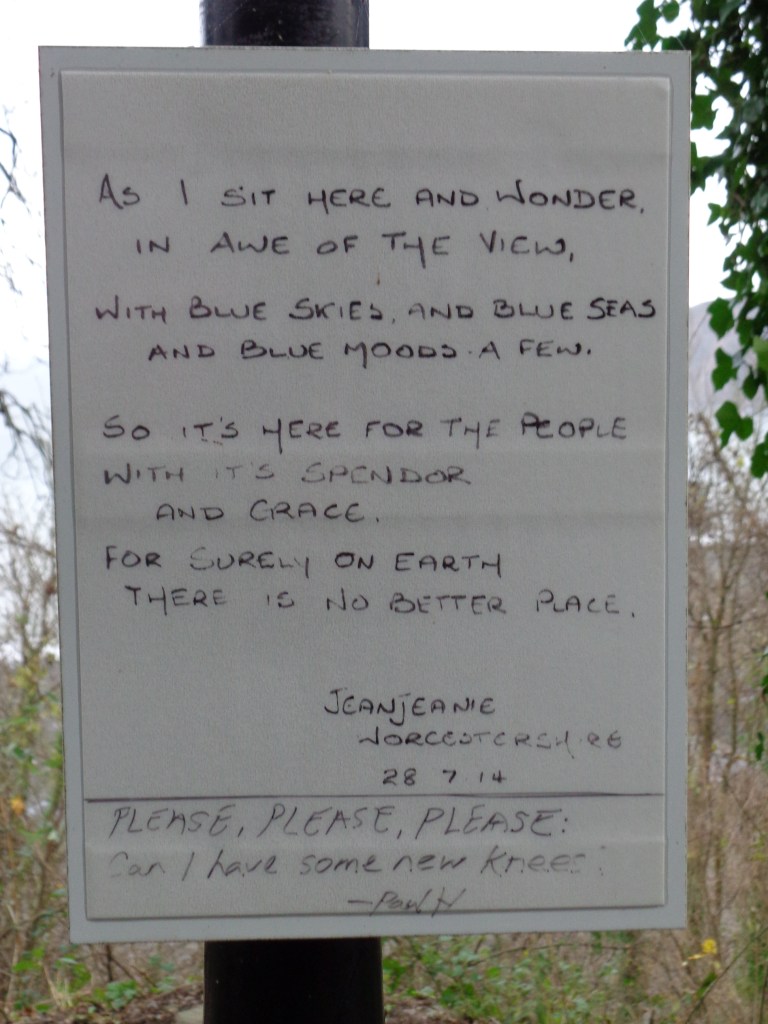 AS I SIT HERE AND WONDER,
IN AWE OF THE VIEW,
WITH BLUE SKIES, AND BLUE SEAS
AND BLUE MOODS. A FEW.
SO IT'S HERE FOR THE PEOPLE
WITH IT'S SPENDOR
AND GRACE.
FOR SURELY ON EARTH
THERE IS NO BETTER PLACE.
JEANJEANIE
WORCESTERSHIRE
28 7 14
PLEASE, PLEASE, PLEASE:
Can I have some new knees!
—Paul H